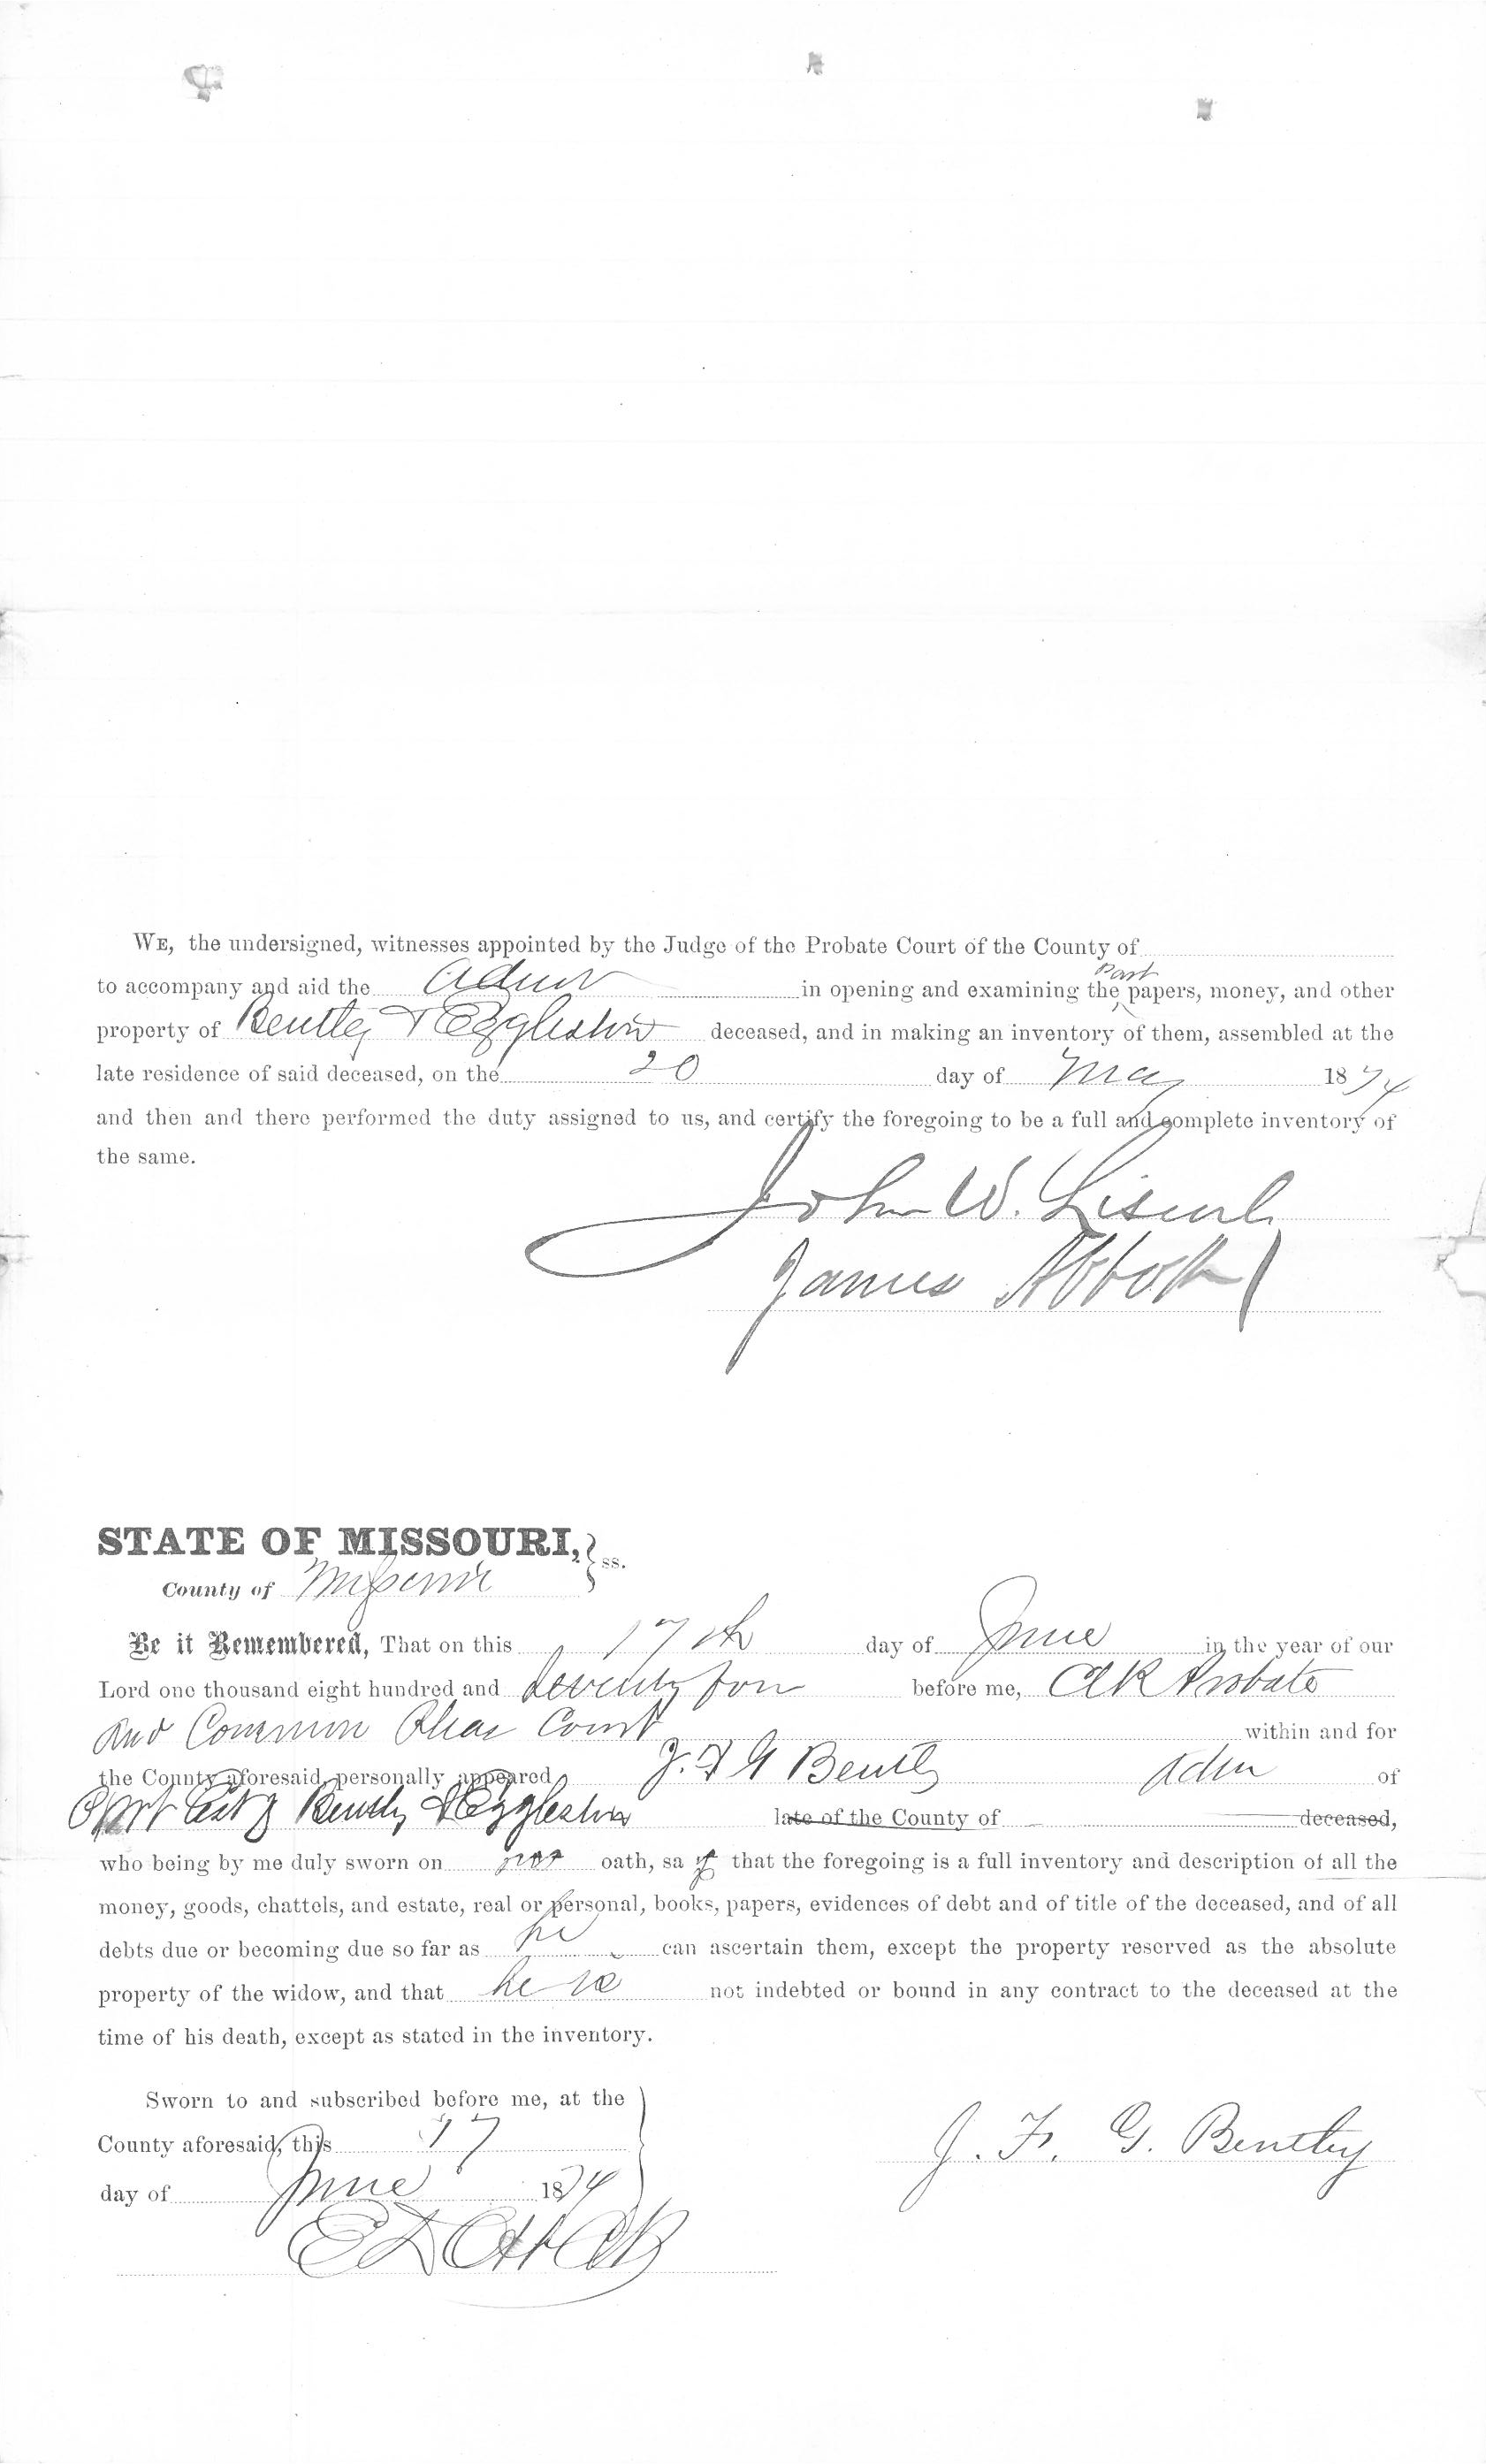 WE, the undersigned, witnesses appointed by the Judge of the Probate Court of the County of
to accompany and aid the Admr in opening and examining the Part papers, money, and other
property of Bentley & Eggleston deceased, and in making an inventory of them, assembled at the
late residence of said deceased, on the 20 day of May 1874
and then and there performed the duty assigned to us, and certify the foregoing to be a full and complete inventory of
the same.
John W.
James Abbott
STATE OF MISSOURI, } ss.
County of
Be it Remembered, That on this 17th day of June in the year of our
Lord one thousand eight hundred and seventy four before me, Clk Probate
and Common Pleas Court within and for
the County aforesaid, personally appeared J. F G Bently Adm of
Part Est of Bently & Eggleston late of the County of deceased,
who being by me duly sworn on oath, sa that the foregoing is a full inventory and description of all the
money, goods, chattels, and estate, real or personal, books, papers, evidences of debt and of title of the deceased, and of all
debts due or becoming due so far as he can ascertain them, except the property reserved as the absolute
property of the widow, and that he is not indebted or bound in any contract to the deceased at the
time of his death, except as stated in the inventory.
Sworn to and subscribed before me, at the
County aforesaid, this 17
day of June 1874
J. F. G. Bentley